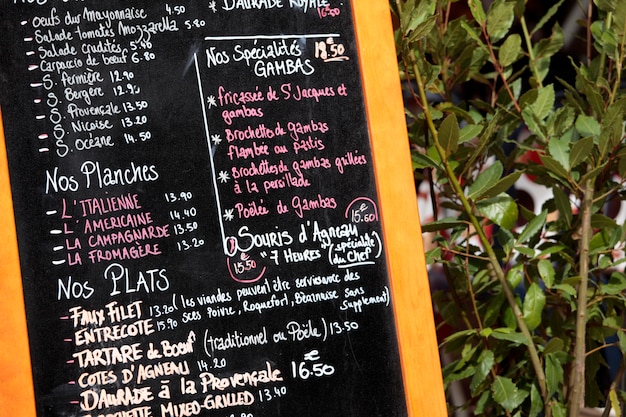 oeufs dur Mayonnaise 4.50
- Salade tomates Mozzarella
- Salade Crudités 5.40
- Carpaccio de bœuf 6.80
- S. fermière 12.90
- S. Bergère 12.90
- S. Provençale 13.50
- S. Niçoise 13.20
- S. Océane 14.50
Nos Planches
- L'ITALIENNE 13.90
- L'AMERICAINE 14.40
- LA CAMPAGNARDE 13.50
- LA FROMAGÈRE 13.20
Nos PLATS
- Faux FILET 13.20 (les viandes peuvent être servies avec des
- ENTRECOTE 15.90 Sces Poivre, Roquefort, Béarnaise sans supplément)
- TARTARE de Bœuf (traditionnel ou Poêlé) 13.50
- COTES D'AGNEAU 14.20
- DAURADE à la Provençale € 16.50
MIXED-GRILLED 13.40
DAURADE Royale 16.50
Nos Spécialités € 18.50
GAMBAS
* fricassée de St Jacques et
gambas
* Brochettes de gambas
flambée au pastis
* Brochettes de gambas grillées
à la persillade
* Poêlée de Gambas € 15.60
Souris d'Agneau
- 7 Heures (spécialité du Chef)
€ 15.50